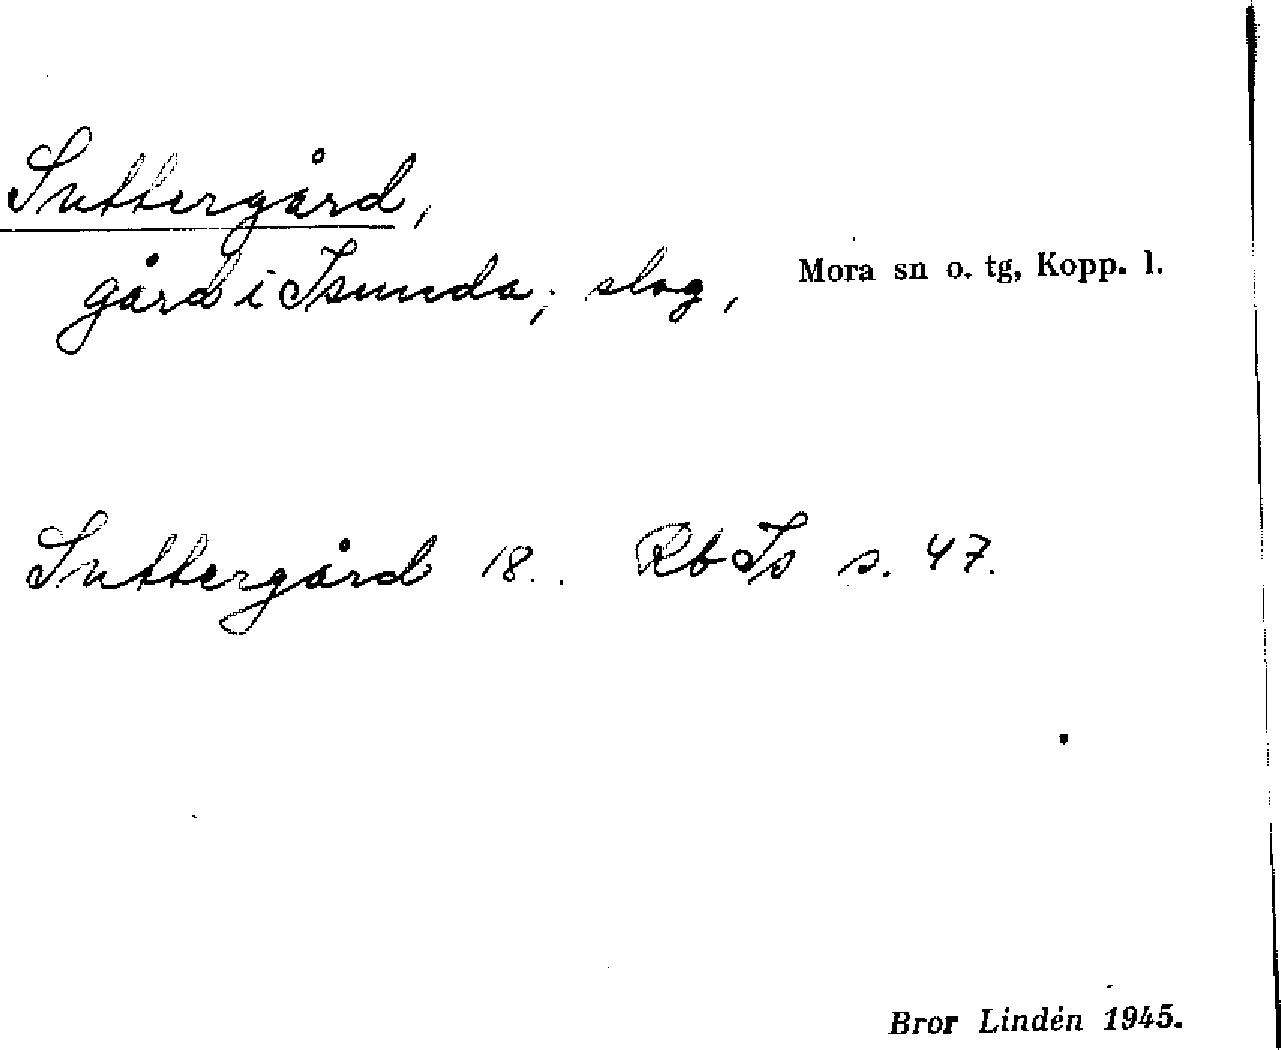 Suttergård,
gård i Isunda; slog, Mora sn o. tg, Kopp. l.
Suttergård 18.. Rb Is s. 47.
Bror Lindén 1945.